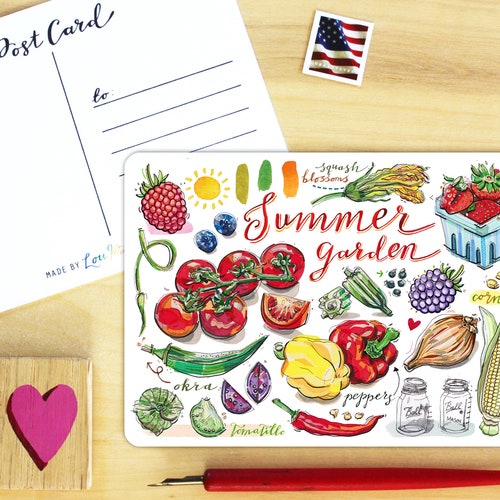 Post Card
to:
MADE BY
squash
blossoms
Summer
garden
corn
okra
peppers
tomatillo
Ball
Ball
MASON